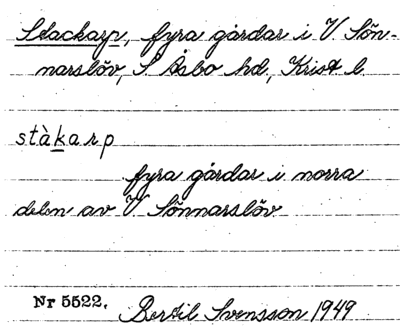 Stackarp, fyra gårdar i V Sön-
narslöv, S Åsbo hd, Krist l.
stàkarp
fyra gårdar i norra
delen av V Sönnarslöv
Nr 5522. Bertil Svensson 1949